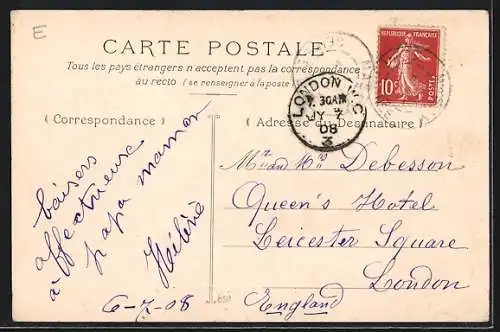 E
CARTE POSTALE
Tous les pays étrangers n'acceptent pas la correspondance
au recto (se renseigner à la poste)
REPUBLIQUE FRANÇAISE
10c
POSTES
LONDON W.C
7.30AM
JY 7
08
(Correspondance)
(Adresse du Destinataire)
baisers
affectueux
à papa maman
Hélène
6-7-08
Mr and Mrs Debesson
Queen's Hotel
Leicester Square
London
England